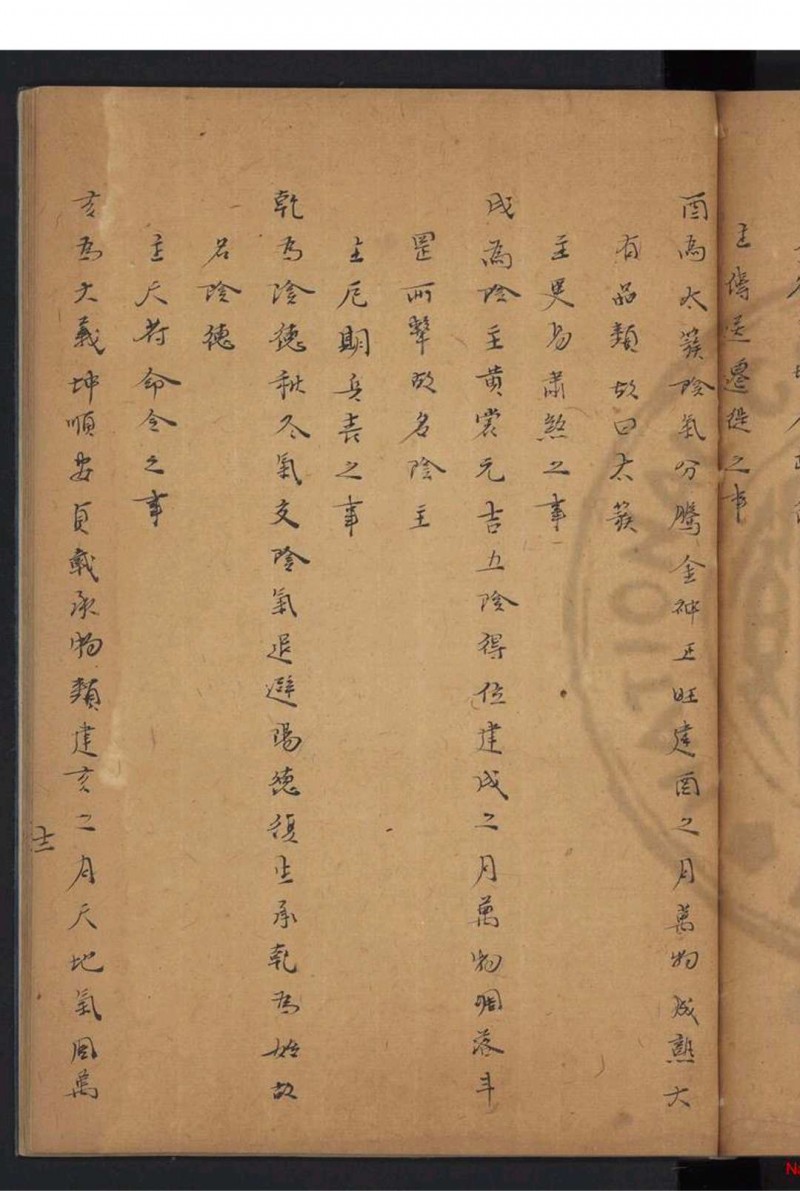 主傳送遷徙之事
酉為太簇陰氣分騰金神正旺建酉之月萬物成熟大
有品類故曰太簇
主更易肅煞之事
戌為陰主黄裳元吉五陰得位建戌之月萬物凋落斗
罡所擊故名陰主
主厄期兵喪之事
乾為陰德秋冬氣交陰氣退避陽德復生承乾為始故
名陰德
主天符命令之事
亥為大義坤順安貞載承物類建亥之月天地氣固萬
十二